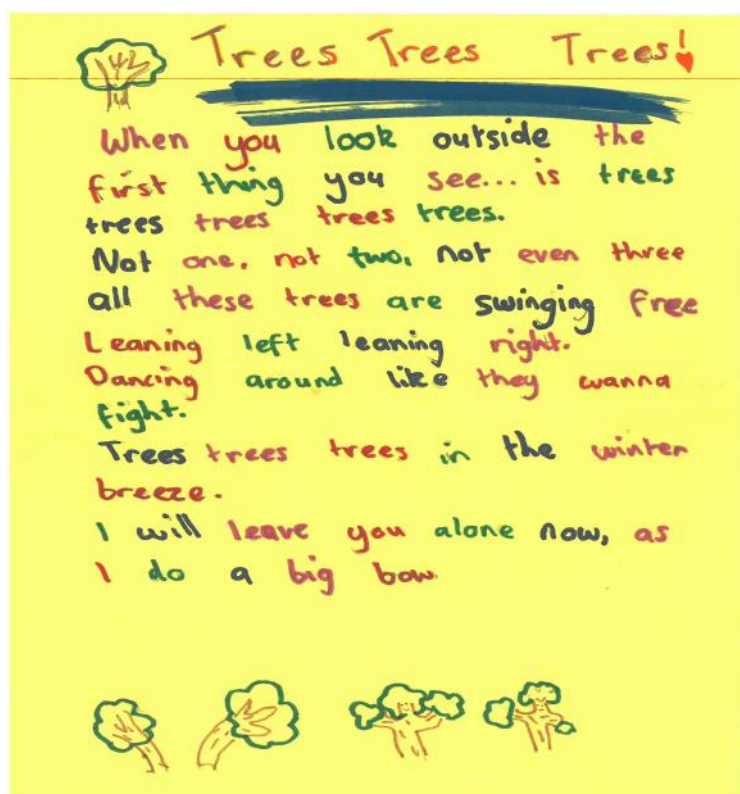 Trees Trees Trees!
When you look outside the
first thing you see... is trees
trees trees trees trees.
Not one, not two, not even three
all these trees are swinging free
Leaning left leaning right.
Dancing around like they wanna
fight.
Trees trees trees in the winter
breeze.
I will leave you alone now, as
I do a big bow